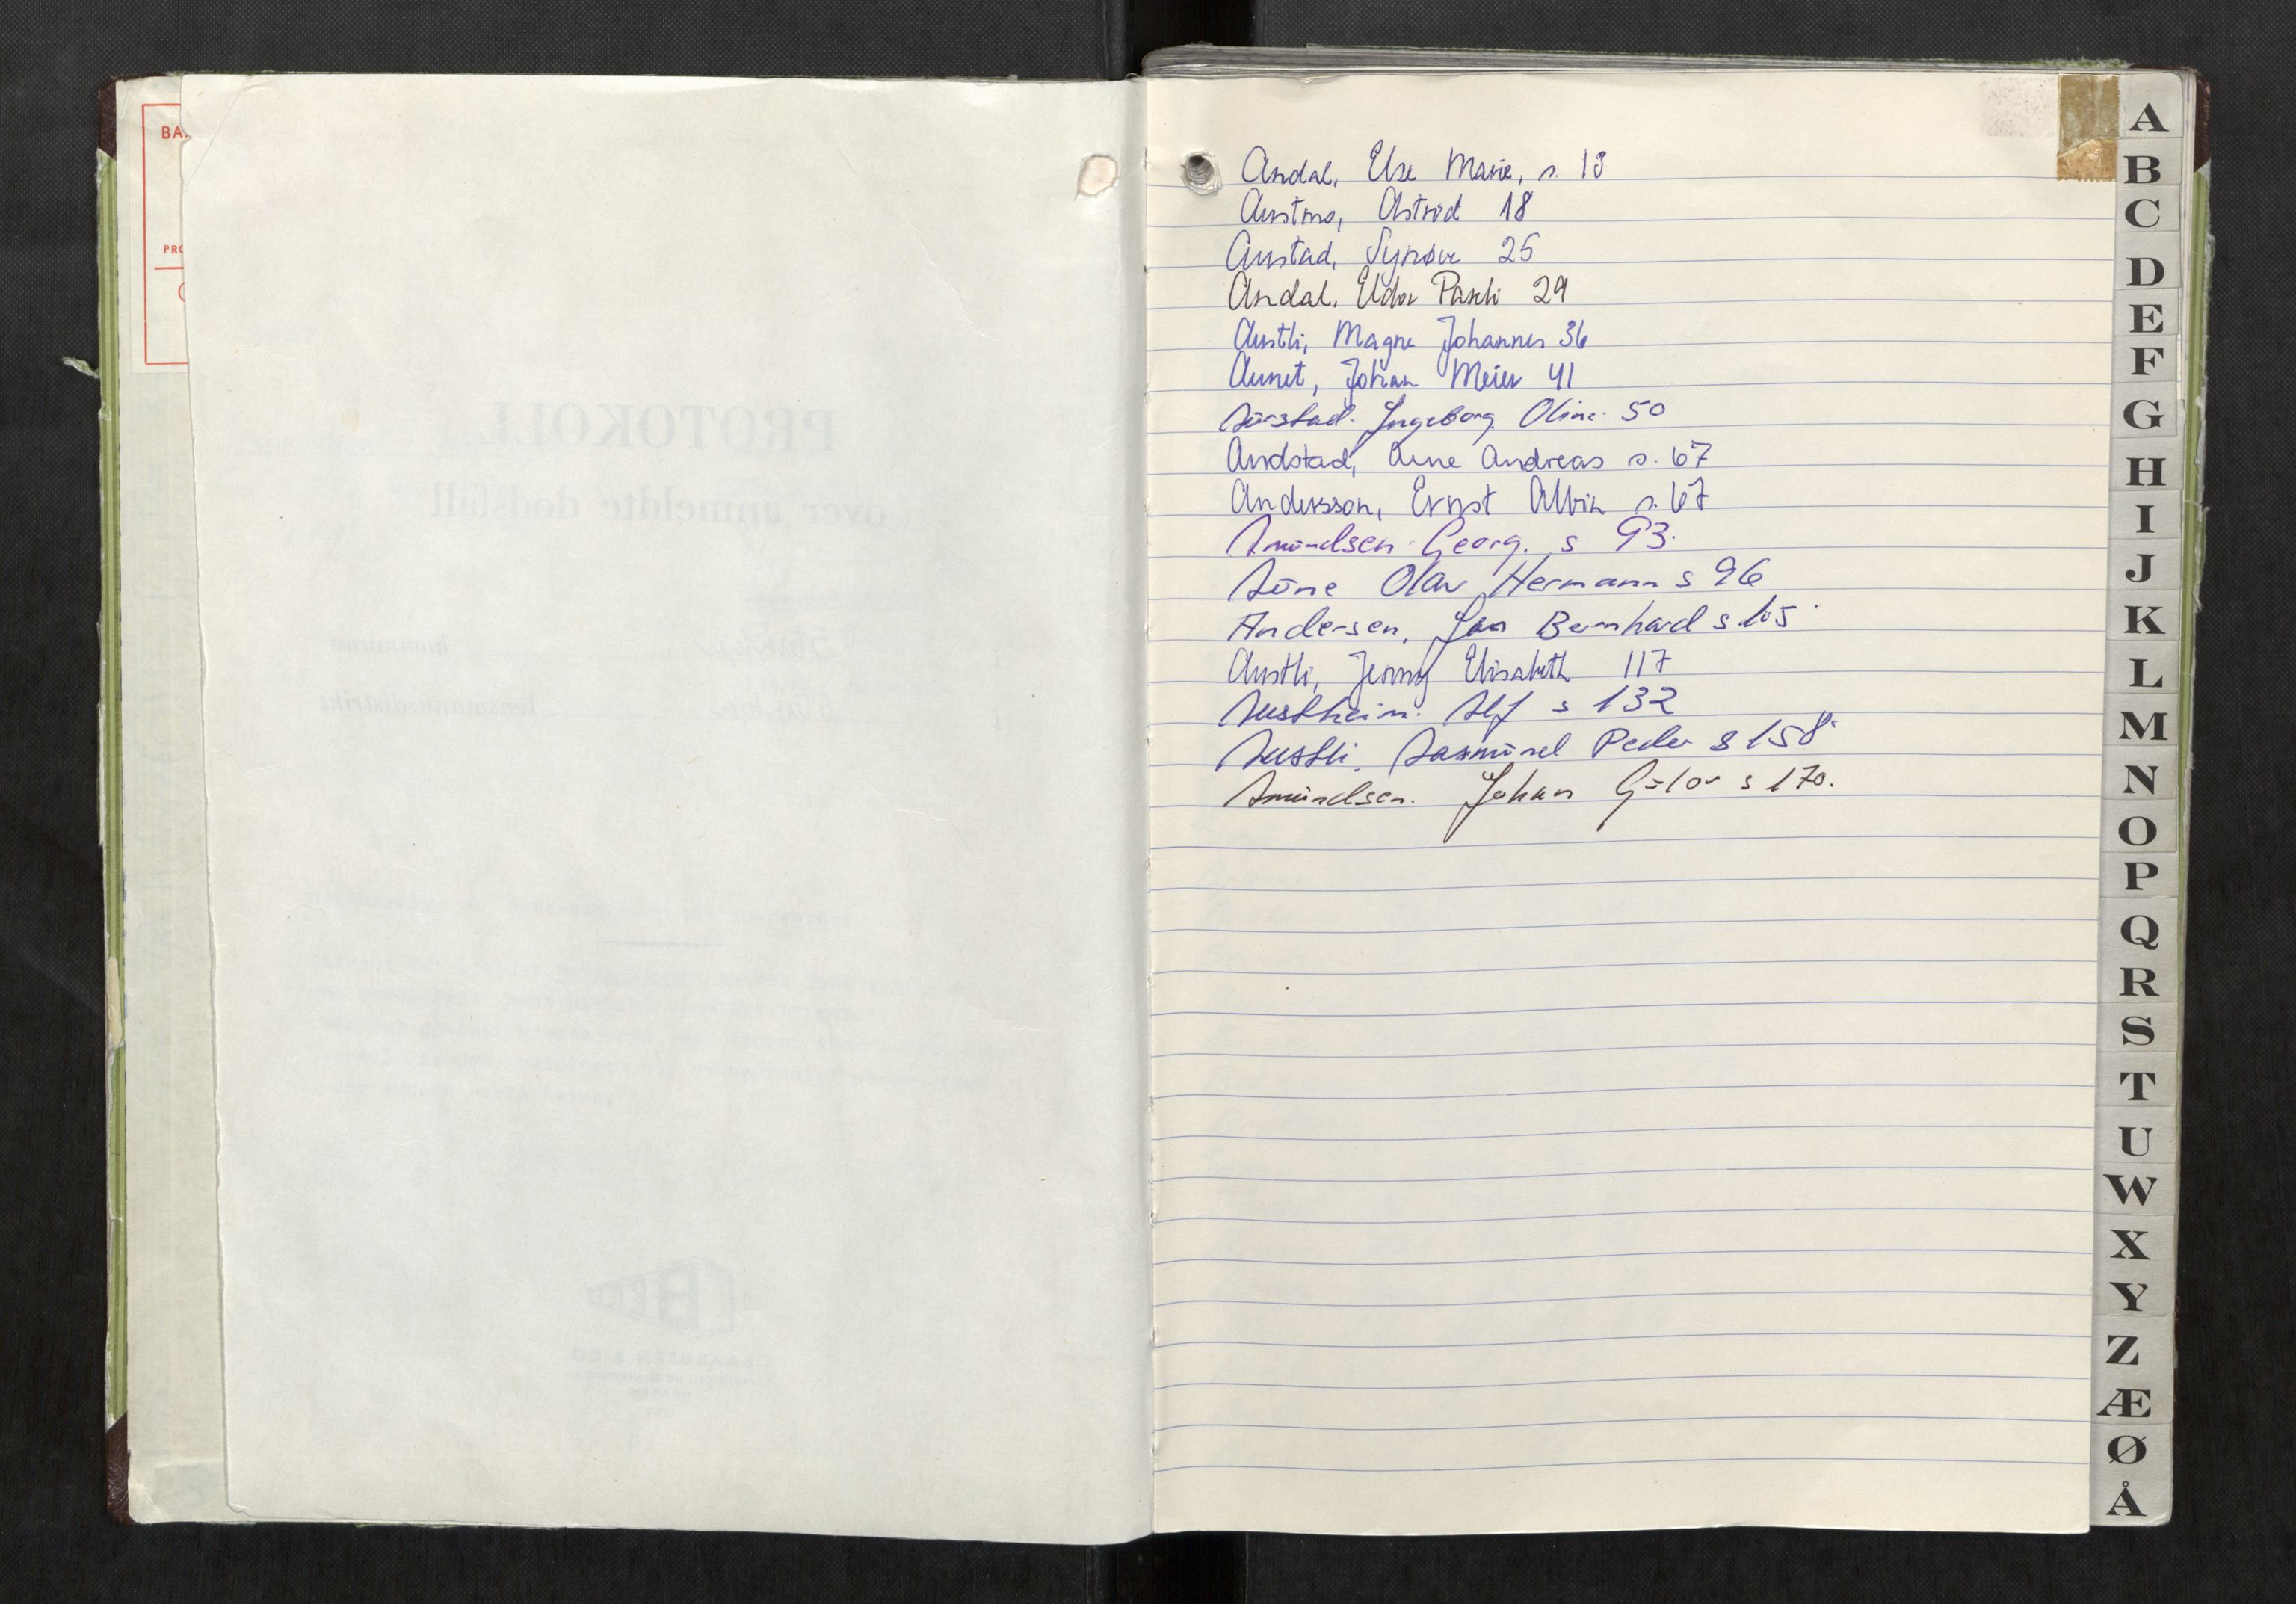 BA
PRO
PROTOKOLL
over anmeldte dødsfall
kommune
lensmannsdistrikt
Andal, Else Marie, s. 13
Austmo, Astrid 18
Austad, Synøve 25
Andal, Eldor Paseli 29
Austli, Magne Johannes 36
Aunet, Johan Meier 41
Aurstad. Ingeborg Oline. 50
Andstad, Arne Andreas s. 67
Andersson, Ernst Albin s. 67
Amundsen Georg. s 93.
Aune Olav Hermann s 96
Andersen, Jan Bernhard s 105
Austli, Jenny Elisabeth 117
Austheim. Alf s 132
Austli. Aasmund Peder s 158
Amundsen. Johan s 170.
A
B
C
D
E
F
G
H
I
J
K
L
M
N
O
P
Q
R
S
T
U
W
X
Y
Z
Æ
Ø
Å